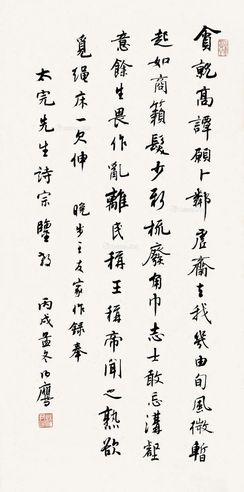 貪就高譚願卜鄰虛齋去我幾由旬風微暫
起如商籟髮少新梳廢角巾志士敢忘溝壑
意餘生畏作亂離民稱王稱帝聞之熟欲
覓繩床一欠伸　晚步至友家作錄奉
太完先生詩宗鑒教　丙戌孟冬乃鷹